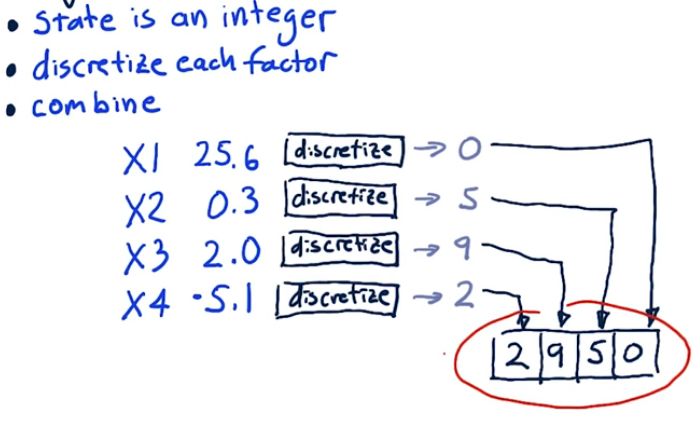 • state is an integer
• discretize each factor
• combine
X1 25.6 discretize → 0
X2 0.3 discretize → 5
X3 2.0 discretize → 9
X4 -5.1 discretize → 2
2 9 5 0